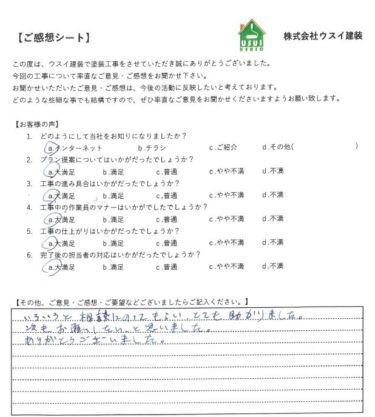 【ご感想シート】
USUI
KENSO
株式会社ウスイ建装
この度は、ウスイ建装で塗装工事をさせていただき誠にありがとうございました。
今回の工事について率直なご意見・ご感想をお聞かせ下さい。
お聞かせいただいたご意見・ご感想は、今後の活動に反映したいと考えております。
どのような些細な事でも結構ですので、ぜひ率直なご意見をお聞かせくださいますようお願い致します。
【お客様の声】
1. どのようにして当社をお知りになりましたか？
a.インターネット b.チラシ c.ご紹介 d.その他( )
2. プラン提案についてはいかがだったでしょうか？
a.大満足 b.満足 c.普通 c.やや不満 d.不満
3. 工事の進み具合はいかがだったでしょうか？
a.大満足 b.満足 c.普通 c.やや不満 d.不満
4. 工事中の作業員のマナーはいかがでしたでしょうか？
a.大満足 b.満足 c.普通 c.やや不満 d.不満
5. 工事の仕上がりはいかがだったでしょうか？
a.大満足 b.満足 c.普通 c.やや不満 d.不満
6. 完了後の担当者の対応はいかがだったでしょうか？
a.大満足 b.満足 c.普通 c.やや不満 d.不満
【その他、ご意見・ご感想・ご要望などございましたらご記入ください。】
いろいろと相談にのってもらい とても助かりました。
次もお願いしたいと思いました。
ありがとうございました。